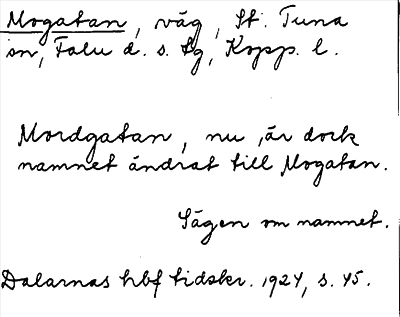 Mogatan, väg, St. Tuna
sn, Falu d. s. tg, Kopp. l.
Mordgatan, nu, är dock
namnet ändrat till Mogatan.
Sägen om namnet.
Dalarnas hbf tidskr. 1924, s. 45.